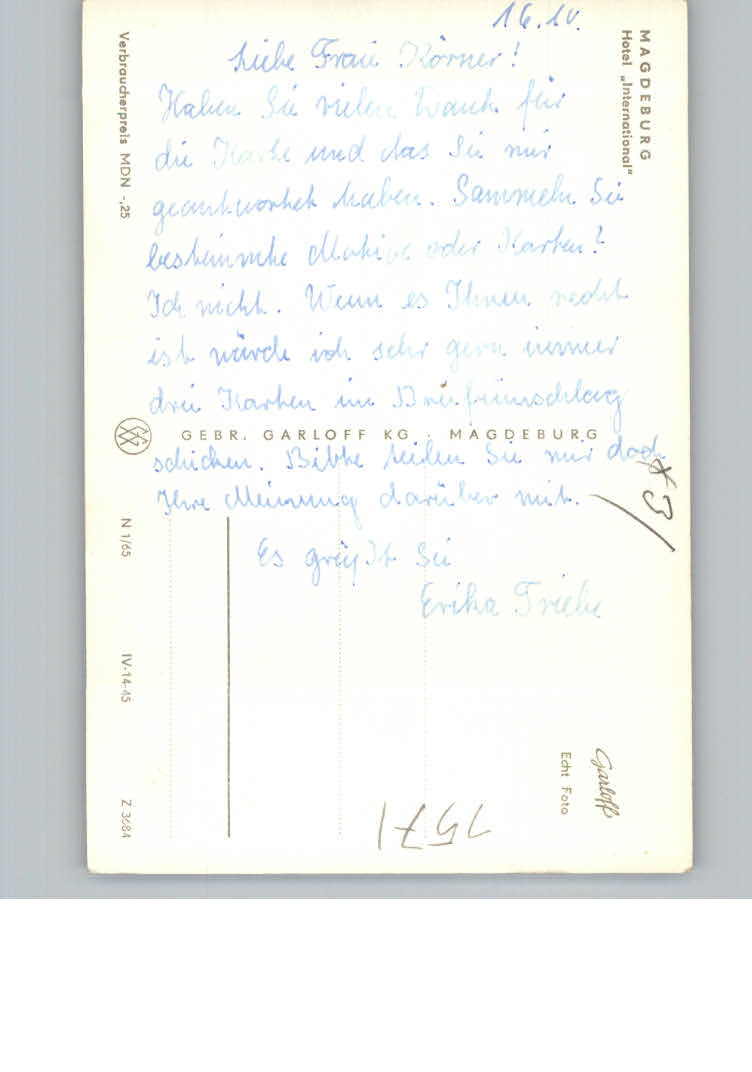 16.10.
Liebe Frau Körner!
Haben Sie vielen Dank für
die Karte und das Sie mir
geantwortet haben. Sammeln Sie
bestimmte Motive oder Karten?
Ich nicht. Wenn es Ihnen recht
ist würde ich sehr gern immer
drei Karten im Briefumschlag
schicken. Bitte teilen Sie mir doch
Ihre Meinung darüber mit.
Es grüßt Sie
Erika Triebe
MAGDEBURG
Hotel „International"
GEBR. GARLOFF KG · MAGDEBURG
Verbraucherpreis MDN -,25
N 1/65
IV-14-45
Z 3684
Garloff
Echt Foto